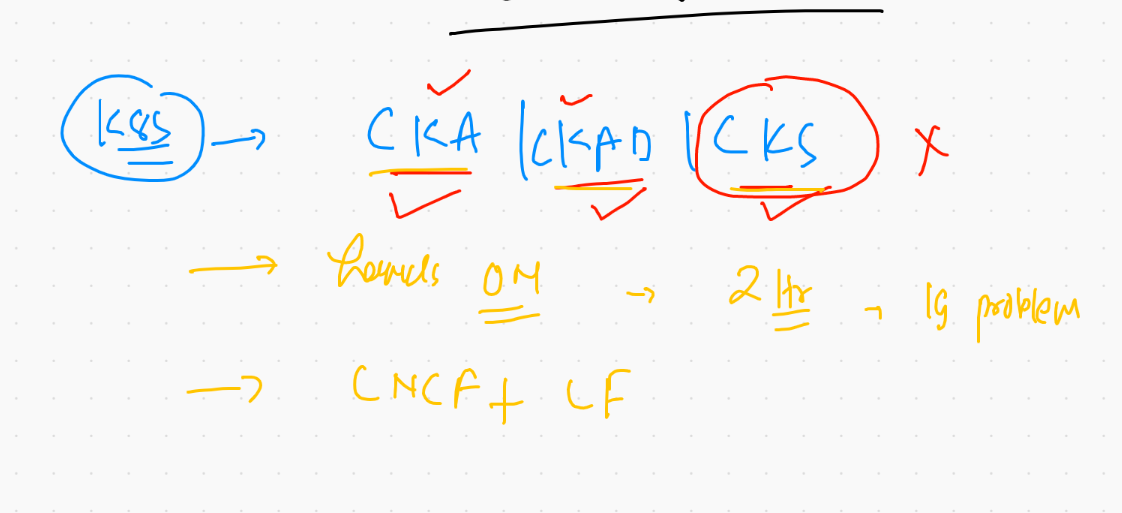 K8S → CKA | CKAD | CKS X
→ hands ON → 2 Hr → 19 problem
→ CNCF + LF